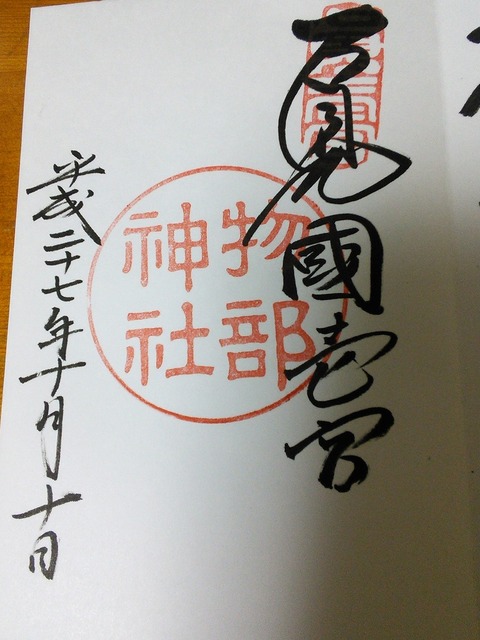 石見國壱宮
物部
神社
平成二十七年十月十日